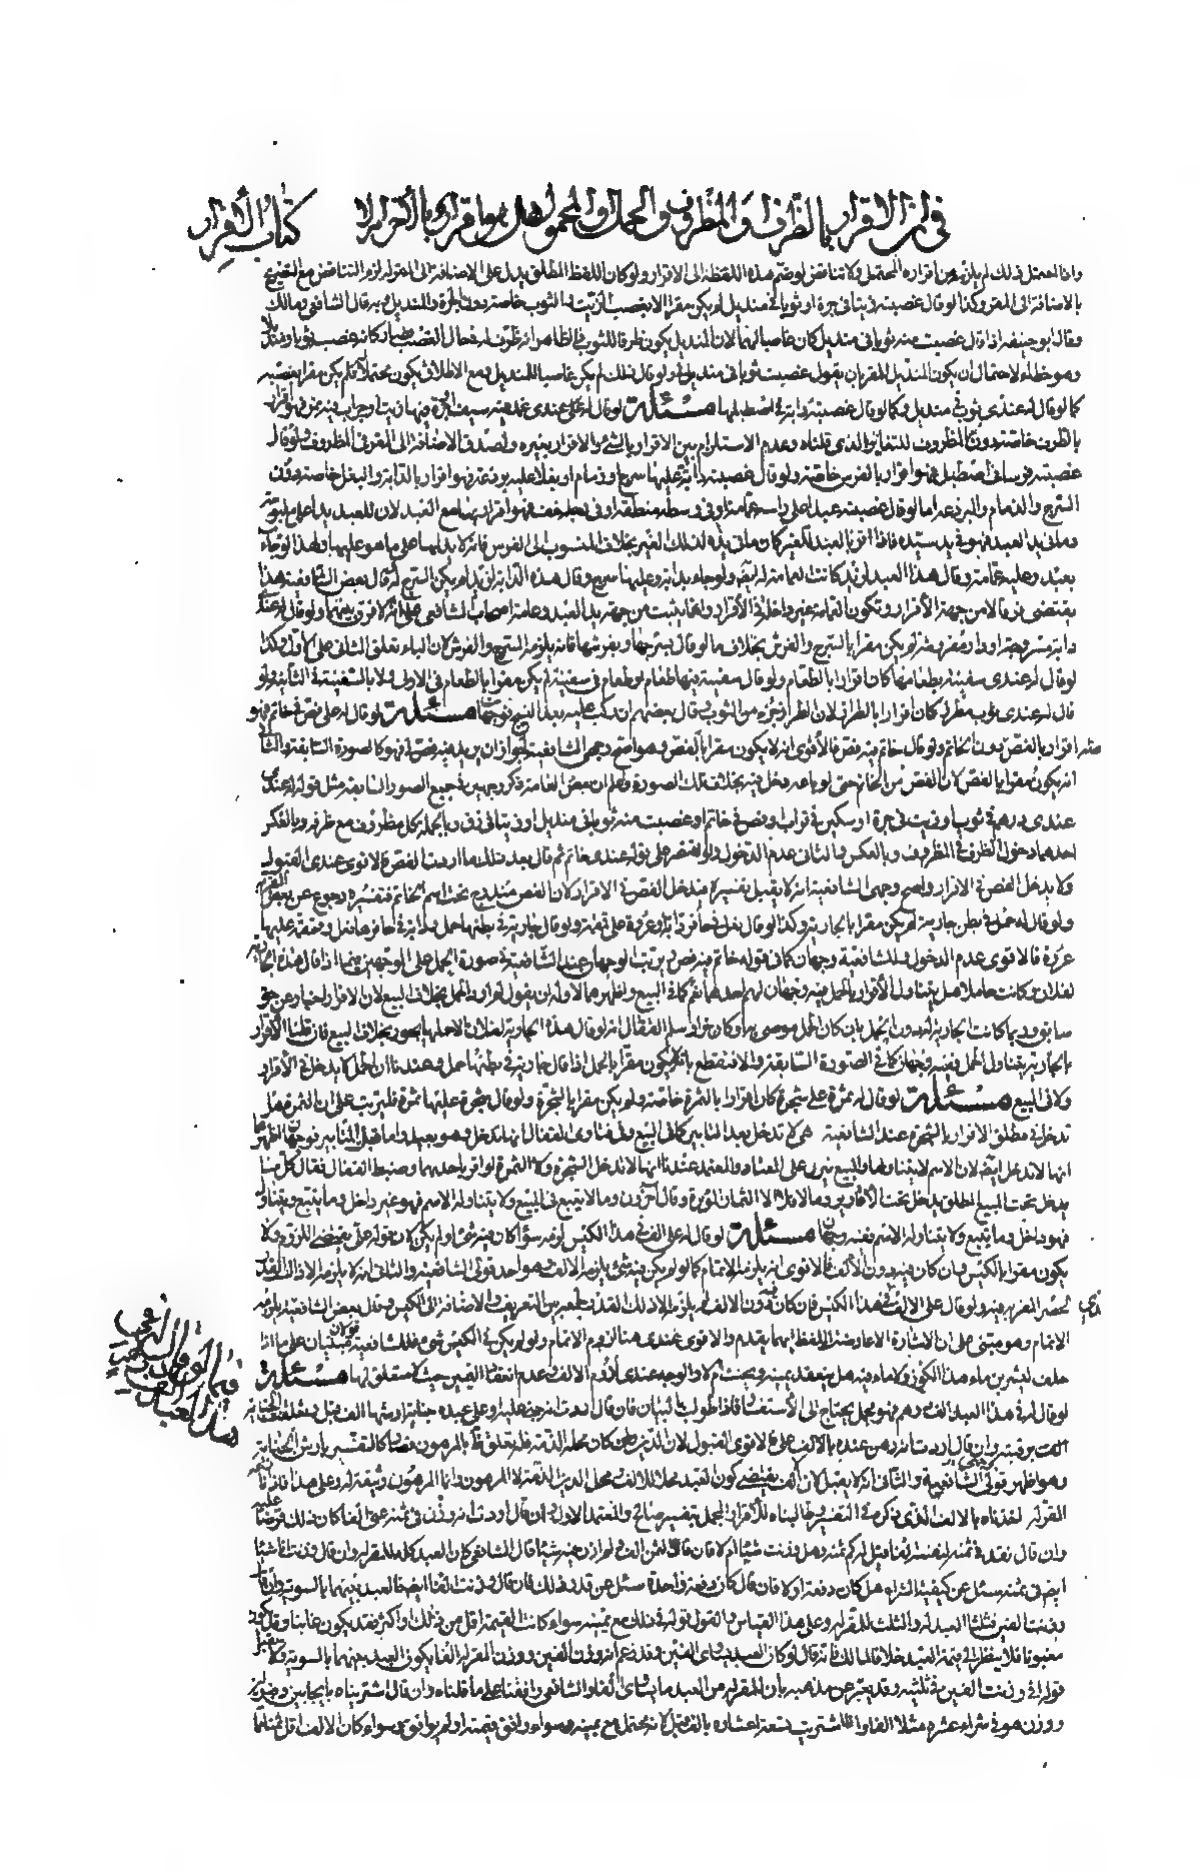 في ان الاقرار بالظرف والمظروف والحمل والمحمول هل هو اقرار بالآخر ام لا كتاب الاقرار
واذا احتمل ذلك لم يلزمه من اقراره المحتمل ولا تناقض لو ضم هذه اللفظة الى الاقرار ولو كان اللفظ المطلق يدل على الاضافة الى المقر له لزم التناقض مع التصريح
بالاضافة الى المقر وكذا لو قال غصبته زيتا في جرة او ثوبا في منديل لم يكن مقرا الا بغصب الزيت والثوب خاصة دون الجرة والمنديل وبه قال الشافعي ومالك
وقال ابو حنيفه اذا قال غصبت منه ثوبا في منديل كان غاصبا لهما لان المنديل يكون ظرفا للثوب فالظاهر انه ظرف له في حال الغصب فصار كانه غصب ثوبا ومنديلا
وهو خطاء لاحتمال ان يكون المنديل للمقر بان يقول غصبت ثوبا في منديل لي ولو قال ذلك لم يكن غاصبا للمنديل ومع الاطلاق يكون محتملا فلم يكن مقرا بغصبه
كما لو قال له عندي ثوب في منديل وكما لو قال غصبته دابة في اصطبلها مسئلة لو قال له عندي غمد فيه سيف او جرة فيها زيت او جراب فيه تمر فهو اقرار
بالظرف خاصة دون المظروف للتغاير الذي قلناه وعدم الاستلزام بين الاقرار بالشئ والاقرار بغيره ولصدق الاضافة الى المقر في المظروف ولو قال
غصبته فرسا في اصطبل فهو اقرار بالفرس خاصة ولو قال غصبته دابة عليها سرج او زمام او بغلا عليه برذعة فهو اقرار بالدابة والبغل خاصة دون
السرج والزمام والبرذعة اما لو قال غصبته عبدا على راسه عمامة او في وسطه منطقة او في رجله خف فهو اقرار بها مع العبد لان للعبد يدا على ملبوسه
وما في يد العبد فهو في يد سيده فاذا اقر بالعبد للغير كان ما في يده لذلك الغير بخلاف المنسوب الى الفرس فانه لا يد لها على ما هو عليها ولهذا لو جاء
بعبد وعليه عمامة وقال هذا العبد لزيد كانت العمامة له ايضا ولو جاء بدابة وعليها سرج وقال هذه الدابة لزيد لم يكن السرج له وقال بعض الشافعية هذا
يقتضي فرقا لا من جهة الاقرار وتكون العمامة غير داخل في الاقرار وانما يثبت من جهة يد العبد وعامة اصحاب الشافعي على انه لا فرق بينهما ولو قال له عندي
دابة مسرجة او دار مفروشة لم يكن مقرا بالسرج والفرش بخلاف ما لو قال بسرجها وبفرشها فانه يلزمه السرج والفرش لان الباء تعلق الثاني على الاول وكذا
لو قال له عندي سفينة بطعامها كان اقرارا بالطعام ولو قال سفينة فيها طعام او طعام في سفينة لم يكن مقرا بالطعام في الاولى ولا بالسفينة في الثانية ولو
قال له عندي ثوب مطرز كان اقرارا بالطراز لان الطراز جزء من الثوب وقال بعضهم ان ركب عليه بعد النسج فوجهان مسئلة لو قال له علي فص في خاتم فهو
اقرار بالفص دون الخاتم ولو قال خاتم فيه فص فالاقوى انه لا يكون مقرا بالفص وهو اصح وجهي الشافعية لجواز ان يريد فيه فص لي فهو كالصورة السابقة والثاني
انه يكون مقرا بالفص لان الفص من الخاتم حتى لو باعه دخل فيه بخلاف تلك الصورة واعلم ان بعض العامة ذكر وجهين في جميع الصور السابقة مثل قوله له عندي
عندي درهم في ثوب او زيت في جرة او سكين في قراب او فص في خاتم او غصبت منه ثوبا في منديل او زيتا في زق وبالجملة كل مظروف مع ظرفه وبالعكس
احدهما دخول الظرف في المظروف وبالعكس والثاني عدم الدخول ولو اقتصر على قوله عندي خاتم ثم قال بعد ذلك ما اردت الفص فالاقوى عندي القبول
ولا يدخل الفص في الاقرار واصح وجهي الشافعية انه لا يقبل تفسيره فيدخل الفص في الاقرار لان الفص مندرج تحت اسم الخاتم فتفسيره رجوع عن بعض المقر به
ولو قال له حمل في بطن جارية لم يكن مقرا بالجارية وكذا لو قال نعل في حافر دابة او عروة على قمقمة ولو قال جارية في بطنها حمل ودابة في حافرها نعل وقمقمة عليها
عروة فالاقوى عدم الدخول وللشافعية وجهان كما في قوله خاتم فيه فص ويرتب الوجهان عند الشافعية في صورة الحمل على الوجهين فيما اذا قال هذه الجارية
لفلان وكانت حاملا هل يتناول الاقرار الحمل فيه وجهان لهم احدهما نعم كما في البيع واظهرهما لا وله ان يقول لم ارد الحمل بخلاف البيع لان الاقرار اخبار عن حق
سابق وربما كانت الجارية له دون الحمل بان كان الحمل موصى به او كان حرا وسلم القفال انه لو قال هذه الجارية لفلان الا حملها يجوز بخلاف البيع فان قلنا الاقرار
بالجارية يتناول الحمل ففيه وجهان كما في الصورة السابقة والا فنقطع بانه لا يكون مقرا بالحمل اذا قال جارية في بطنها حمل وعندنا ان الحمل لا يدخل في الاقرار
ولا في البيع مسئلة لو قال له ثمرة على شجرة كان اقرارا بالثمرة خاصة ولم يكن مقرا بالشجرة ولو قال شجرة عليها ثمرة فليرتب على ان الثمرة هل
تدخل في مطلق الاقرار بالشجرة عند الشافعية هي لا تدخل بعد التابير كما في البيع وفي فتاوى القفال انها تدخل وهو بعيد واما قبل التابير فوجهان اظهرهما
انها لا تدخل ايضا لان الاسم لا يتناولها والبيع ينزل على المعتاد والمعتمد عندنا انها لا تدخل الشجرة ولا الثمرة لو اقر باحديهما وضبط القفال فقال كل ما
يدخل تحت البيع المطلق يدخل تحت الاقارير وما لا فلا الا الثمار المؤبرة وقال آخرون وما لا يتبع في البيع ولا يتناوله الاسم فهو غير داخل وما يتبع ويتناوله
فهو داخل وما يتبع ولا يتناوله الاسم ففيه وجهان مسئلة لو قال له علي الف في هذا الكيس لزمه سواء كان فيه شئ او لم يكن لان قوله علي يقتضي اللزوم ولا
يكون مقرا بالكيس وان كان فيه دون الالف فالاقوى انه يلزمه الاتمام كما لو لم يكن فيه شئ يلزمه الالف وهو احد قولي الشافعية والثاني انه لا يلزمه الا ذلك القدر
لحصر المقر به فيه ولو قال علي الالف الذي في هذا الكيس فان كان فيه دون الالف لم يلزمه الا ذلك القدر لجمعه بين التعريف والاضافة الى الكيس وقال بعض الشافعية يلزمه
الاتمام وهو مبني على ان الاشارة اذا عارضت اللفظ ايهما يقدم والاقوى عندي هنا لزوم الاتمام ولو لم يكن في الكيس شئ فللشافعية قولان مبنيان على ما اذا
حلف ليشربن ماء هذا الكوز ولا ماء فيه هل ينعقد يمينه ويحنث ام لا والوجه عندي لزوم الالف وعدم انعقاد اليمين حيث لا متعلق لها مسئلة
لو قال له في هذا العبد الف درهم فهو مجمل يحتاج الى الاستفسار فاذا طولب بالبيان فان قال اردت انه جنى عليه او على عبده جناية ارشها الف قبل وتعلقت الجناية
الف برقبته وان قال اردت انه رهن عنده بالالف علي فالاقوى القبول لان الدين وان كان محله الذمة فله تعلق ظاهر بالمرهون فصار كالتفسير بارش الجناية
وهو اظهر قولي الشافعية والثاني انه لا يقبل لان الف يقتضي كون العبد محلا للالف ومحل الدين الذمة لا المرهون وانما المرهون وثيقة له وعلى هذا فاذا نازعه
المقر له اخذناه بالالف الذي ذكره في التفسير وطالبناه للاقرار المجمل بتفسير صالح والمعتمد الاول وان قال اردت انه وزن في ثمنه عني الفا كان ذلك قرضا عليه
وان قال نقد في ثمنه لنفسه الفا قيل له كم ثمنه وهل وزنت شيئا ام لا فان قال ثمن الف ولم ازن فيه شيئا قال الشافعي كان العبد كله للمقر له وان قال وزنت انا شيئا
ايضا في ثمنه سئل عن كيفية الشراء هل كان دفعة او لا فان قال كان دفعة واحدة سئل عن قدر وزنه فان قال وزنت الفا ايضا فالعبد بينهما بالسوية وان قال
وزنت الفين فثلثا العبد له والثلث للمقر له وعلى هذا القياس والقول قوله في ذلك مع يمينه سواء كانت القيمة اقل من ذلك او اكثر فقد يكون غابنا وقد يكون
مغبونا فلا ينظر الى قيمة العبد خلافا لمالك فانه قال لو كان العبد يساوي الفين وقد زعم انه وزن الفين ووزن المقر له الفا يكون العبد بينهما بالسوية ولا يقبل
قوله اني وزنت الفين في ثلثيه وقد يعبر عن مذهبه بان للمقر له من العبد ما يساوي الفا والشافعي وافقنا على ما قلناه وان قال اشتريناه بايجابين وزيد انه
ووزن هو في شراء عشره مثلا الفا وانا اشتريت تسعة اعشاره بالف قبل لانه محتمل مع يمينه وسواء وافق قيمته او لم يوافق وسواء كان الالف اقل ثمنا